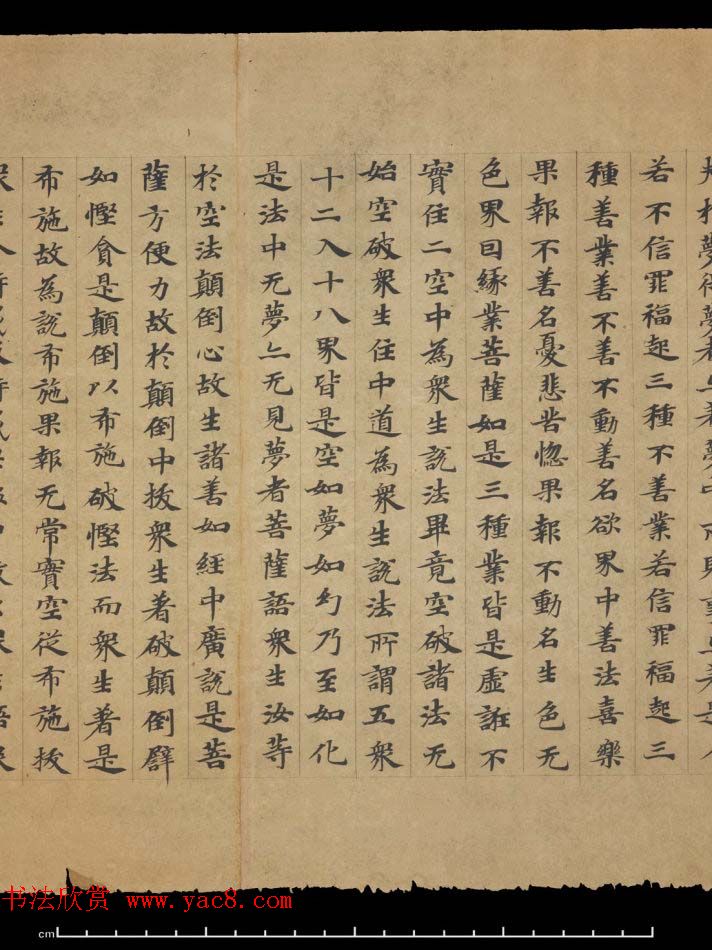 夢得夢者亦著夢中所見事亦著是
若不信罪福起三種不善業若信罪福起三
種善業善不善不動善名欲界中善法喜樂
果報不善名憂悲苦惱果報不動名生色无
色界因緣業菩薩知是三種業皆是虛誑不
實住二空中為衆生說法畢竟空破諸法无
始空破衆生住中道為衆生說法所謂五衆
十二入十八界皆是空如夢如幻乃至如化
是法中无夢亦无見夢者菩薩語衆生汝等
於空法顛倒心故生諸善如經中廣說是菩
薩方便力故於顛倒中拔衆生著破顛倒譬
如慳貪是顛倒以布施破慳法而衆生著是
布施故為說布施果報无常實空從布施拔
书法欣赏 www.yac8.com
cm